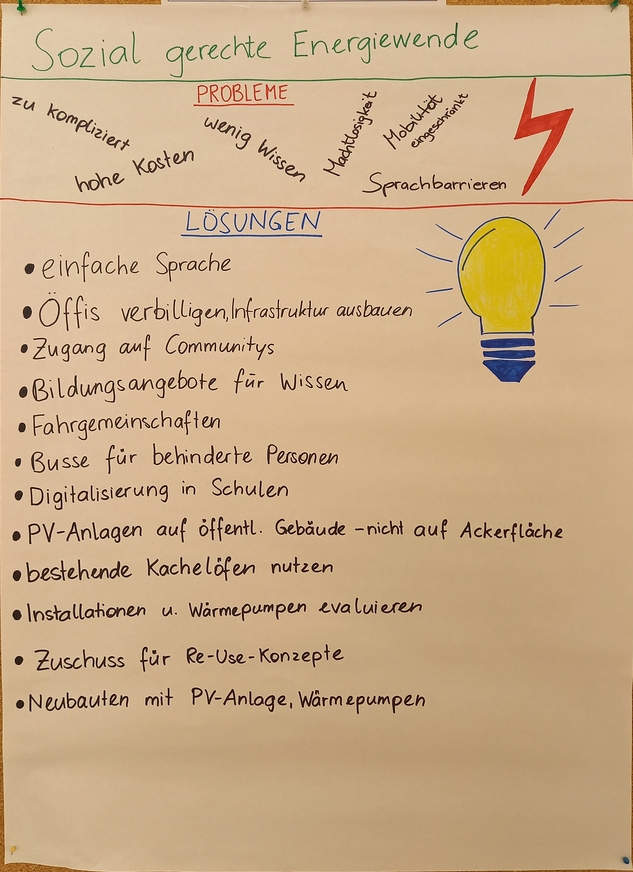 Sozial gerechte Energiewende
PROBLEME
zu kompliziert
hohe Kosten
wenig Wissen
Machtlosigkeit
Mobilität
eingeschränkt
Sprachbarrieren
LÖSUNGEN
• einfache Sprache
• Öffis verbilligen, Infrastruktur ausbauen
• Zugang auf Communitys
• Bildungsangebote für Wissen
• Fahrgemeinschaften
• Busse für behinderte Personen
• Digitalisierung in Schulen
• PV-Anlagen auf öffentl. Gebäude - nicht auf Ackerfläche
• bestehende Kachelöfen nutzen
• Installationen u. Wärmepumpen evaluieren
• Zuschuss für Re-Use-Konzepte
• Neubauten mit PV-Anlage, Wärmepumpen